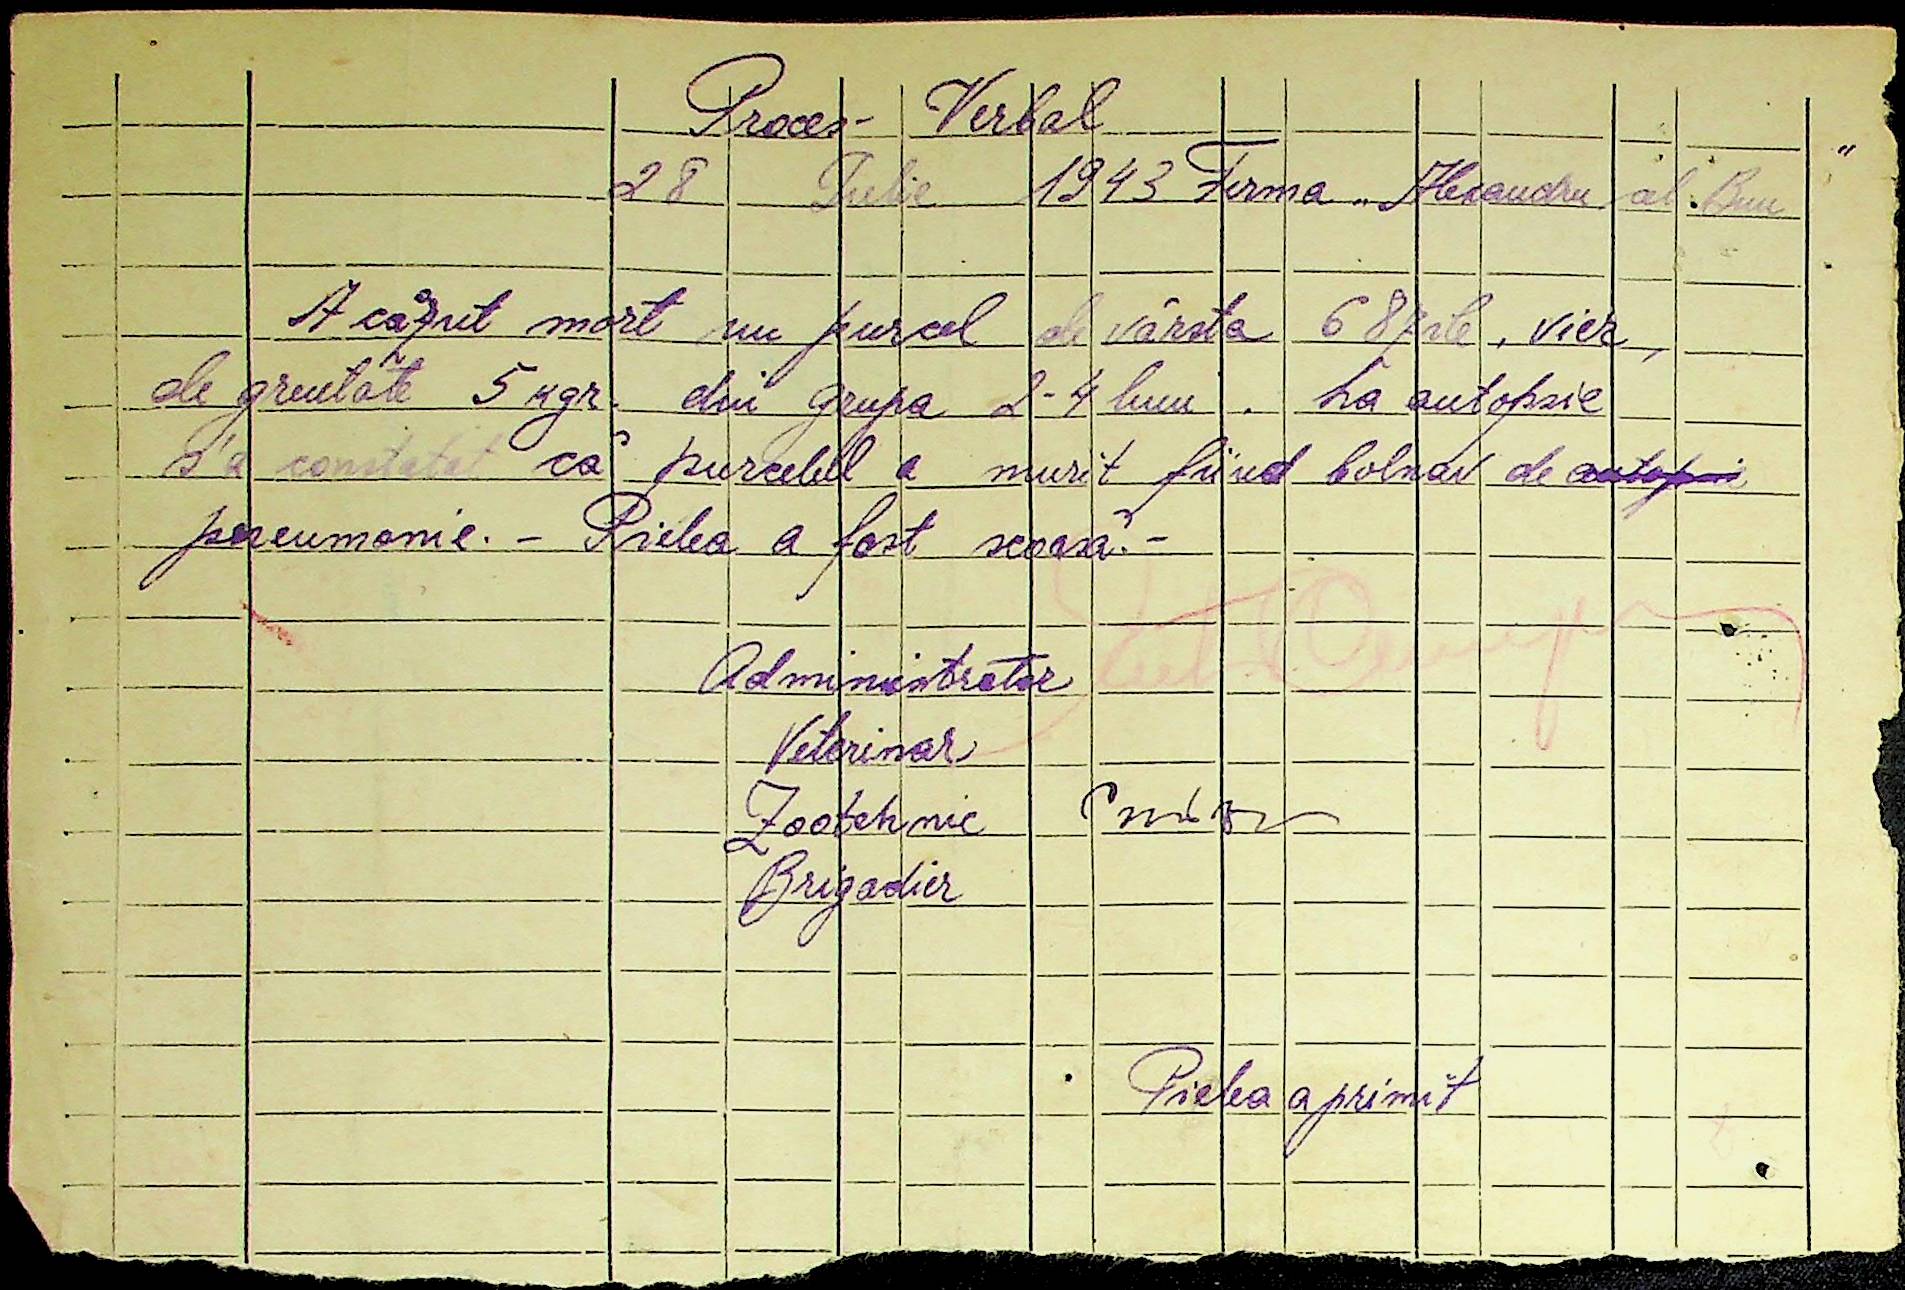 Proces- Verbal
28 Iulie 1943 Ferma „Alexandru cel Bun"
A căzut mort un purcel de vârsta 68 zile, vier,
de greutate 5 kgr. din grupa 2-4 luni. La autopsie
s'a constatat că purcelul a murit fiind bolnav de autopsi
pneumonie. - Pielea a fost scoasă. -
Administrator
Veterinar
Zootehnic
Brigadier
Pielea a primit